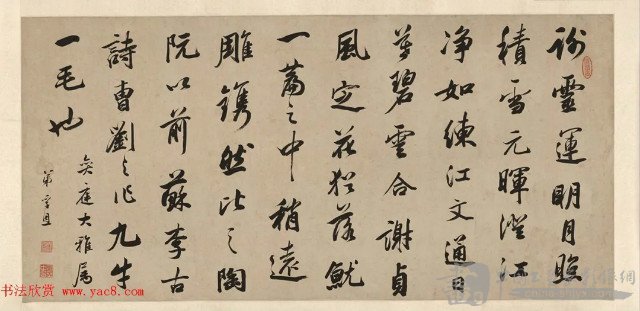 謝靈運明月照
積雪元暉澄江
净如練江文通日
莫碧雲合謝貞
風定花猶落就
一篇之中稍遠
雕鐫然比之陶
阮以前蘇李古
詩曹劉之作九牛
一毛也
奕庭大雅屬
弟
书法欣赏
www.yac8.com